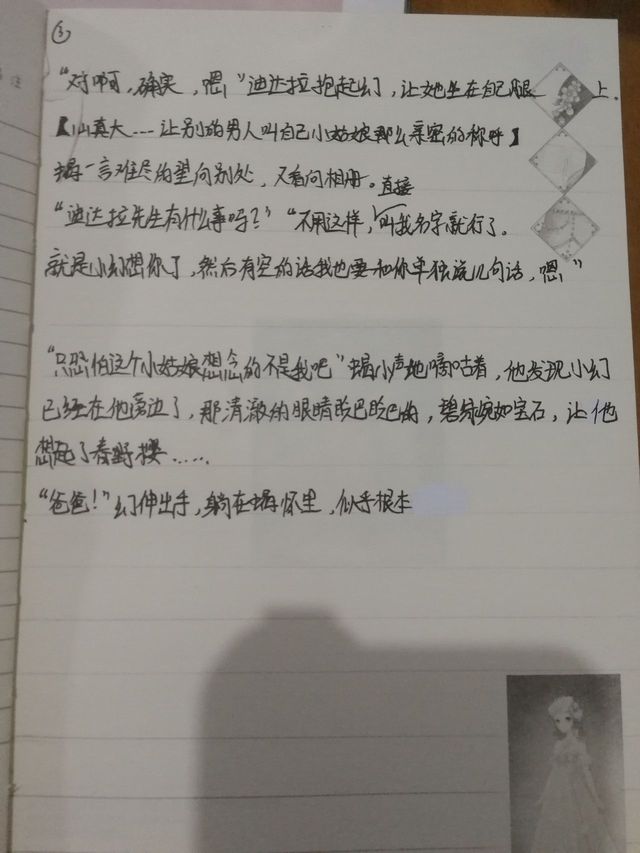 ③
“对啊，确实，嗯”迪达拉抱起幻，让她坐在自己腿上.
【心真大...让别的男人叫自己小姑娘那么亲密的称呼】
蝎一言难尽的望向别处，又看向相册。直接
“迪达拉先生有什么事吗？”“不用这样，叫我名字就行了。
就是小幻想你了，然后有空的话我也要和你单独说几句话，嗯”
“只恐怕这个小姑娘想念的不是我吧”蝎小声地嘀咕着，他发现小幻
已经在他旁边了，那清澈的眼睛眨巴眨巴的，碧绿宛如宝石，让他
想起了春野樱......
“爸爸！”幻伸出手，躺在蝎怀里，似乎根本